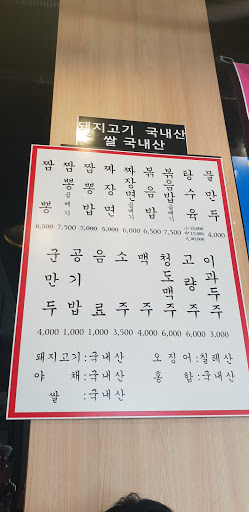 돼지고기 국내산
쌀 국내산
짬뽕 6,500
짬뽕곱빼기 7,500
짬뽕밥 7,000
짜장면 5,000
짜장면곱빼기 6,000
볶음밥 6,500
볶음밥곱빼기 7,500
탕수육
물만두 4,000
군만두 4,000
공기밥 1,000
음료 1,000
소주 3,500
맥주 4,000
청도맥주 6,000
고량주 6,000
이과두주 3,000
돼지고기:국내산 오징어:칠레산
야 채:국내산 홍 합:국내산
쌀 :국내산